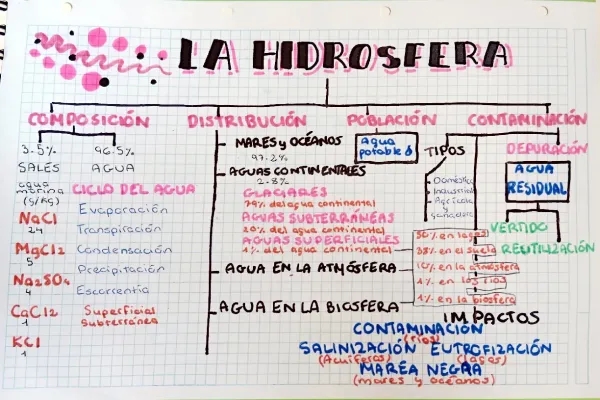 LA HIDROSFERA
COMPOSICIÓN
3.5% 96.5%
SALES AGUA
agua marina (g/kg)
NaCl
24
MgCl2
5
Na2SO4
4
CaCl2
1
KCl
1
CICLO DEL AGUA
Evaporación
Transpiración
Condensación
Precipitación
Escorrentía
Superficial
Subterránea
DISTRIBUCIÓN
- MARES y OCÉANOS
97.2%
- AGUAS CONTINENTALES
2.8%
GLACIARES
79% del agua continental
AGUAS SUBTERRÁNEAS
20% del agua continental
AGUAS SUPERFICIALES
1% del agua continental
50% en lagos
38% en el suelo
10% en la atmósfera
1% en los ríos
1% en la biosfera
- AGUA EN LA ATMÓSFERA
- AGUA EN LA BIOSFERA
POBLACIÓN
Agua
potable
CONTAMINACIÓN
TIPOS
Doméstica
Industrial
Agrícola
y
ganadera
DEPURACIÓN
AGUA
RESIDUAL
VERTIDO
REUTILIZACIÓN
IMPACTOS
CONTAMINACIÓN
(ríos)
SALINIZACIÓN EUTROFIZACIÓN
(Acuíferos) (lagos)
MAREA NEGRA
(mares y océanos)